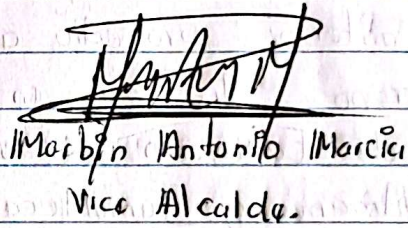 Marbin Antonio Marcia
Vice Alcalde.